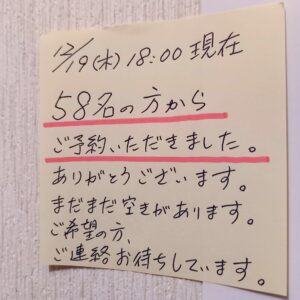 12/19(木)18:00 現在
58名の方から
ご予約いただきました。
ありがとうございます。
まだまだ空きがあります。
ご希望の方、
ご連絡お待ちしています。